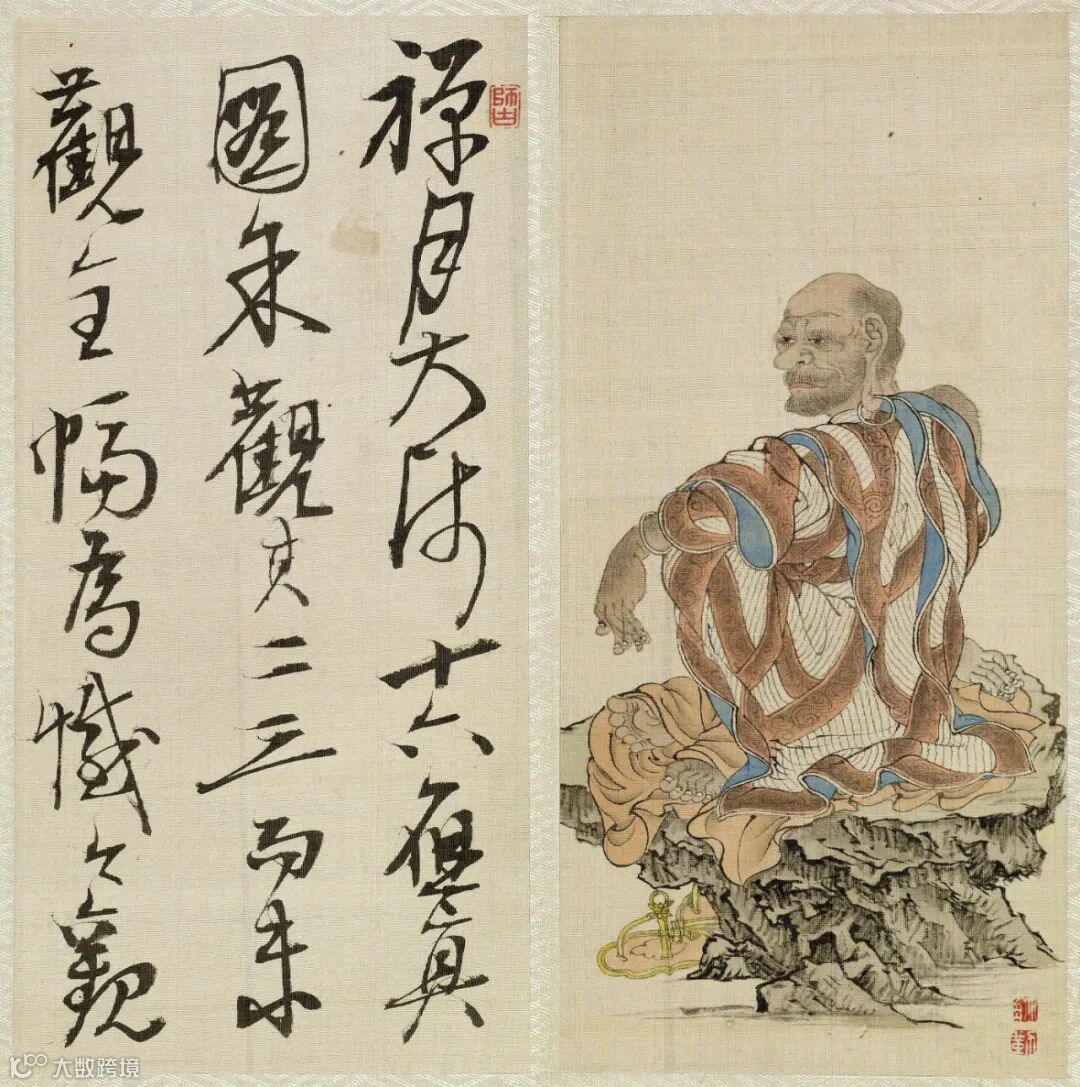 師古
禪月大師十六應真
圖余觀其二三而未
觀全幅為憾今觀
大数跨境